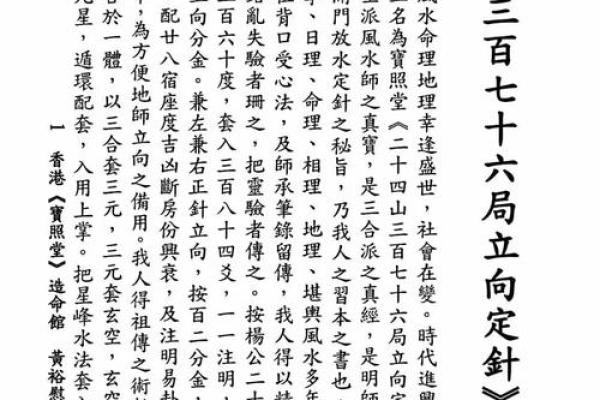 三百七十六局立向定針》
風水命理地理幸逢盛世，社會在變。時代進興
名為寶照堂《二十四山三百七十六局立向定
派風水師之真寶，是三合派之真經，是明師
開門放水定針之秘旨，乃我人之習本之書也
、日理、命理、相理、地理、堪輿風水多年
背口受心法，及師承筆錄留傳，我人得以精
亂失驗者珊之，把靈驗者傳之。按楊公二十
百六十度，套入三百八十四爻，一一注明
立向分金。兼左兼右正針立向，按百二分金，
配廿八宿座度吉凶斷房份興衰，及注明易卦
，為方便地師立向之備用。我人得祖傳之術
於一體，以三合套三元，三元套玄空，玄空
星，遁環配套，入用上掌。把星峰水法套
1 香港《寶照堂》造命館 黃裕慰